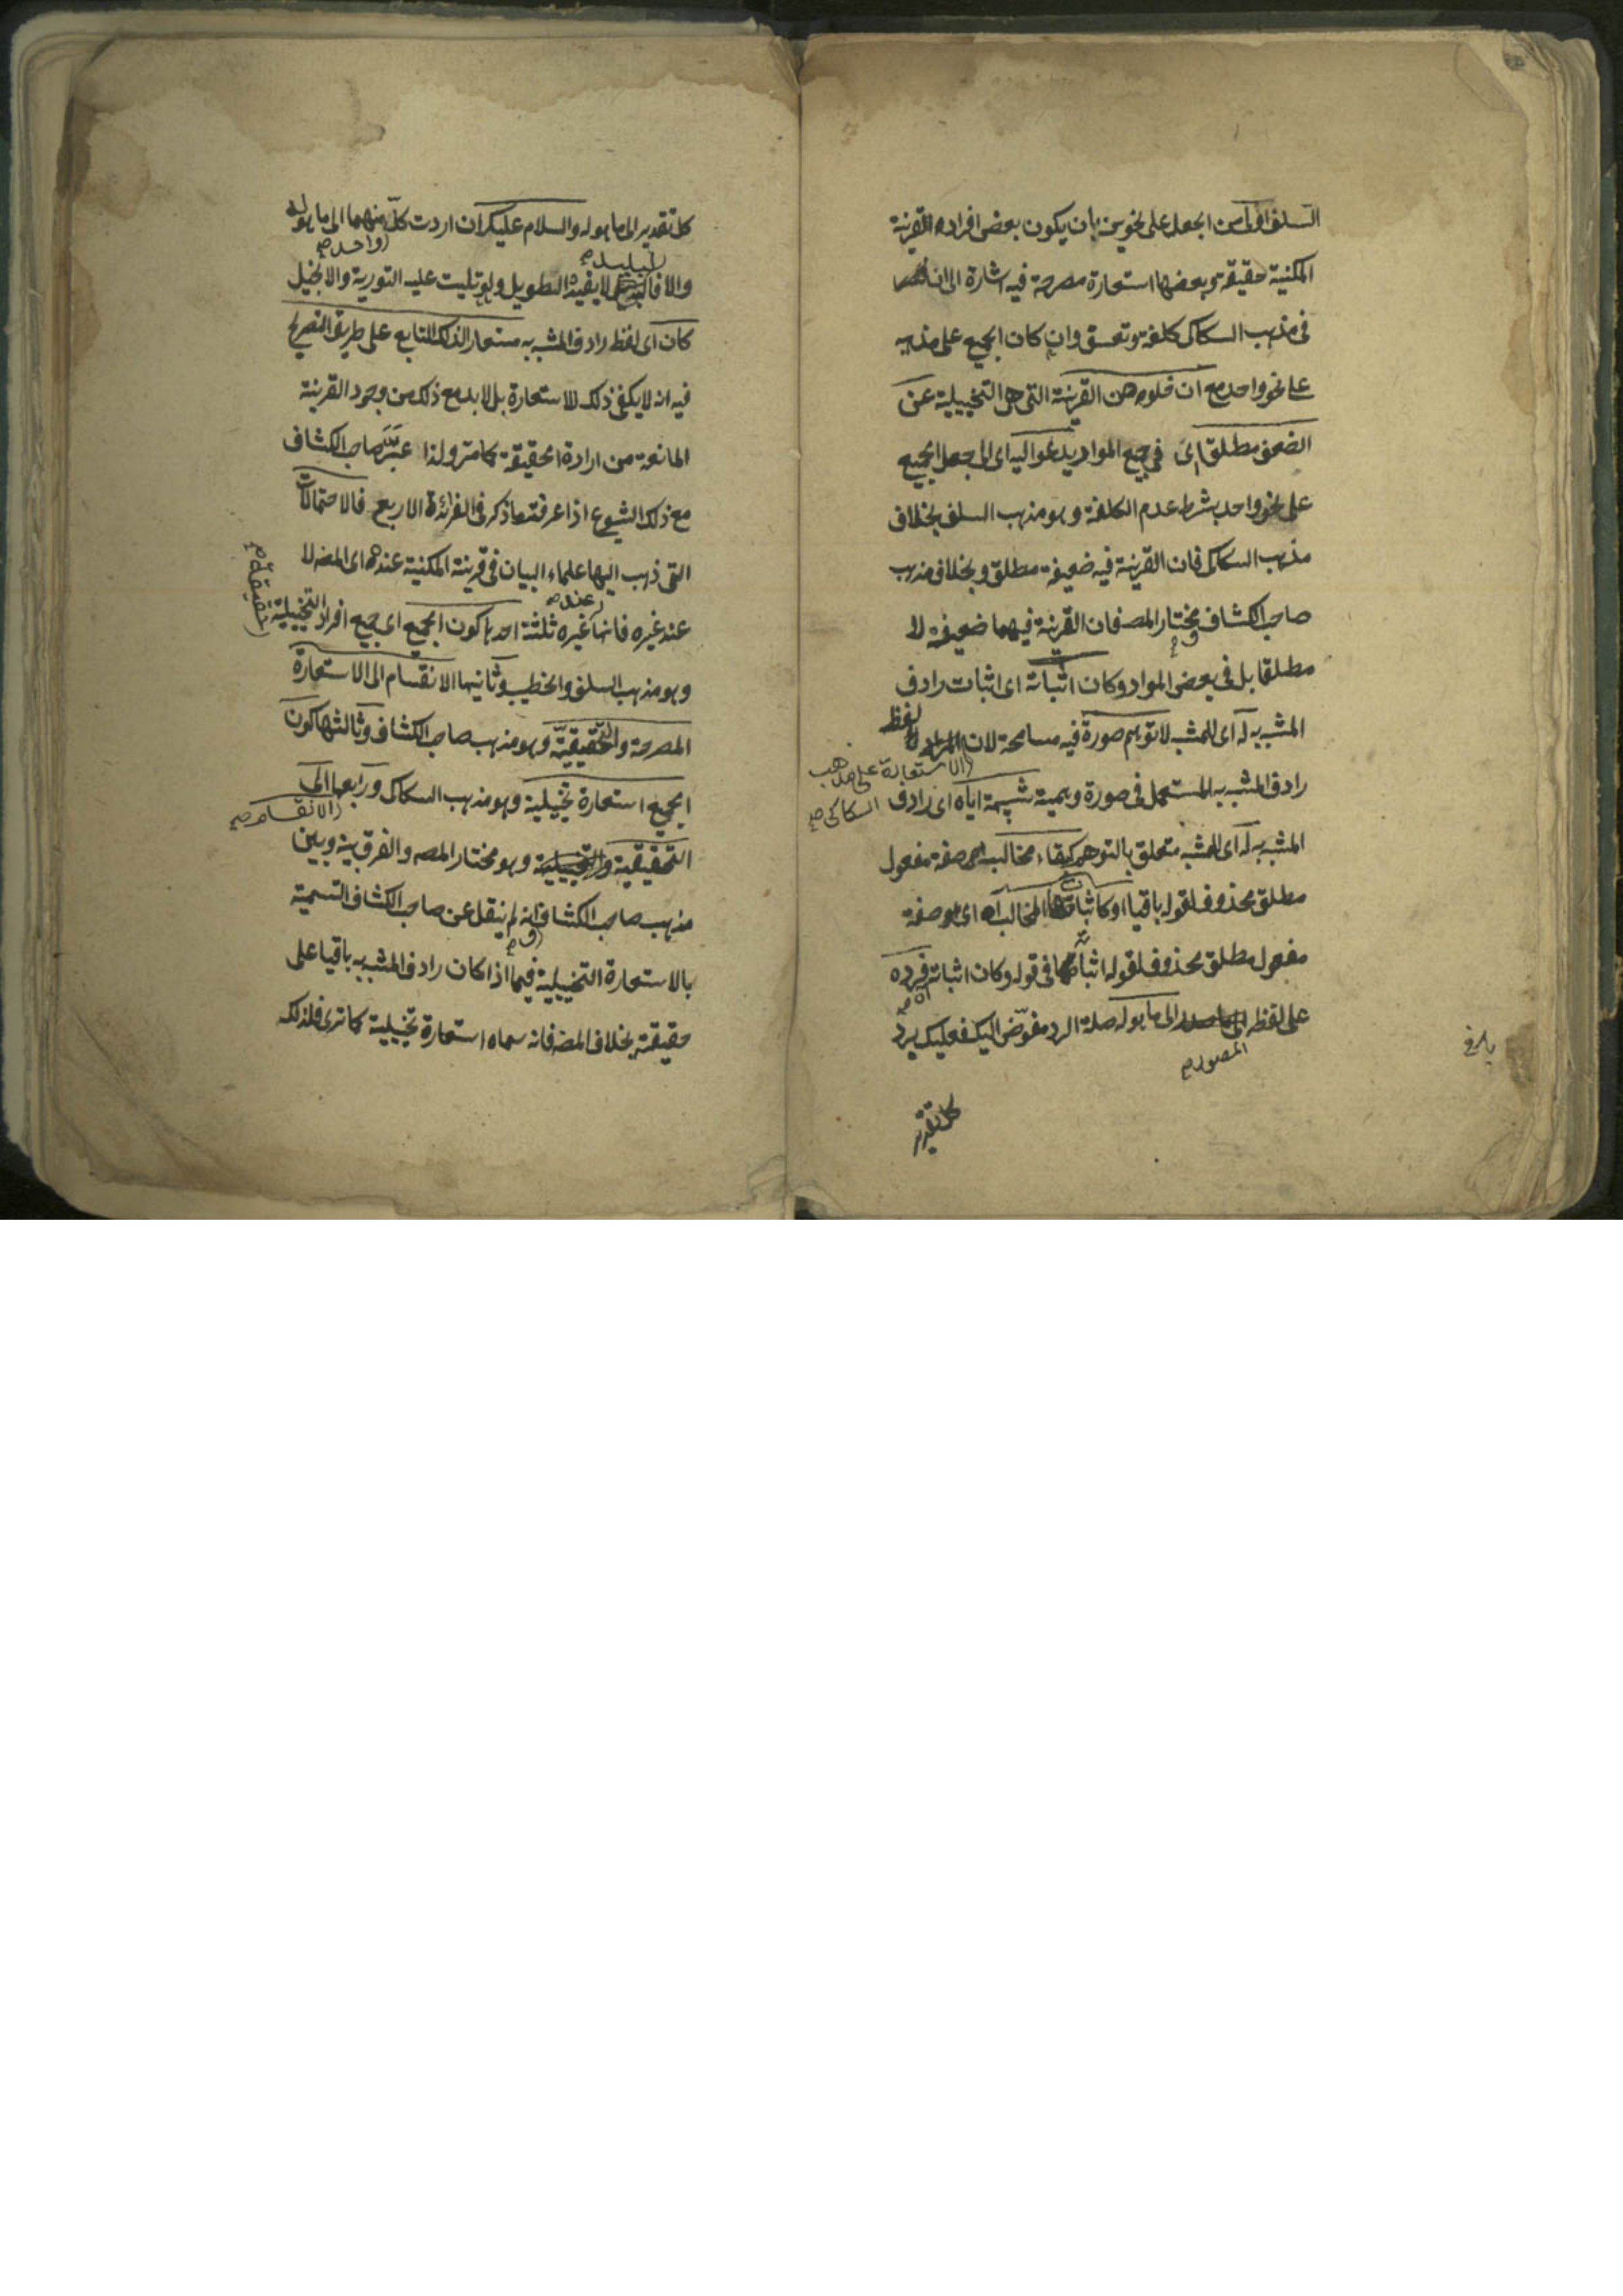 السلف اولى من الجعل على نحوين بان يكون بعض افراده القرينة
المكنية حقيقة وبعضها استعارة مصرحة فيه اشارة الى ان
فى مذهب السكاكى كلفة وتعسق وان كان الجميع على مذهبه
على نحو واحد مع ان خلوه من القرينة التى هى التخييلية عن
الضعف مطلقا اى فى جميع المواد يدعوا اليه اى الى جعل الجميع
على نحو واحد بشرط عدم الكلفة وهو مذهب السلف بخلاف
مذهب السكاكى فان القرينة فيه ضعيفة مطلقا وبخلاف مذهب
صاحب الكشاف ومختار المصنف فان القرينة فيهما ضعيفة لا
مطلقا بل فى بعض المواد وكان اثباته اى اثبات رادف
المشبه به له اى للمشبه لا توهم صورة فيه مسامحة لان المراد لفظ
الاستعارة على مذهب
رادف المشبه به المستعمل فى صورة وهمية شبيهة اياه اى رادف السكاكى صح
المشبه به له اى للمشبه متعلق بالتوهم كبقاء مخالب اه صفة مفعول
مطلق محذوف لقوله باقيا او كاثبات المخالب اه اى هو صفة
مفعول مطلق محذوف لقوله اثباته فى قوله وكان اثباته فرده
على لفظه الى ما هو له صلة الرد مفوض اليك فعليك برد
المصور صح
كل تقدير
بلغ
كل تقدير الى ما هو له والسلام عليكم ان اردت كل منهما الى ما هو له
واحد صح
للبليد صح
والا لا يفيد التطويل ولو تليت عليه التورية والانجيل
كان اى لفظ رادف المشبه به مستعارا لذلك التابع على طريق التصريح
فيه انه لا يكفى ذلك للاستعارة بل لا بد مع ذلك من وجود القرينة
المانعة من ارادة الحقيقة كما مر ولذا عبر صاحب الكشاف
مع ذلك الشيوع اذا عرفت ما ذكر فى الفرائد الاربع فالاحتمالات
التى ذهب اليها علماء البيان فى قرينة المكنية عنده اى المصنف لا
عند صح
عند غيره فانها غيره ثلثة احدها كون الجميع اى جميع افراد التخييلية
حقيقة صح
وهو مذهب السلف والخطيب وثانيها الانقسام الى الاستعارة
المصرحة والحقيقية وهو مذهب صاحب الكشاف وثالثها كون
الجميع استعارة تخييلية وهو مذهب السكاكى ورابعها الى
الانقسام صح
التحقيقية والتخييلية وهو مختار المصنف والفرق بينه وبين
مذهب صاحب الكشاف انه لم ينقل عن صاحب الكشاف التسمية
بالاستعارة التخييلية فيما اذا كان رادف المشبه به باقيا على
حقيقته بخلاف المصنف فانه سماه استعارة تخييلية كما ترى فلذلك